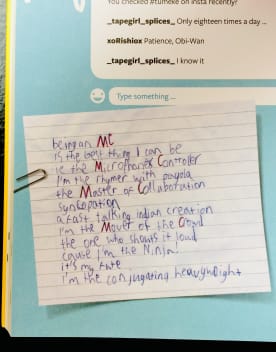 You checked #tumeke on insta recently?
_tapegirl_splices_ Only eighteen times a day ...
xoRishiox Patience, Obi-Wan
_tapegirl_splices_ I know it
Type something ...
being an MC
is the best thing I can be
ie the Microphones Controller
I'm the rhymer with payola
the Master of Collaboration
syncopation
a fast talking indian creation
I'm the Mover of the Crowd
the one who shouts it loud
cause I'm the Ninja!
it's my fate
I'm the conjugating heavyweight